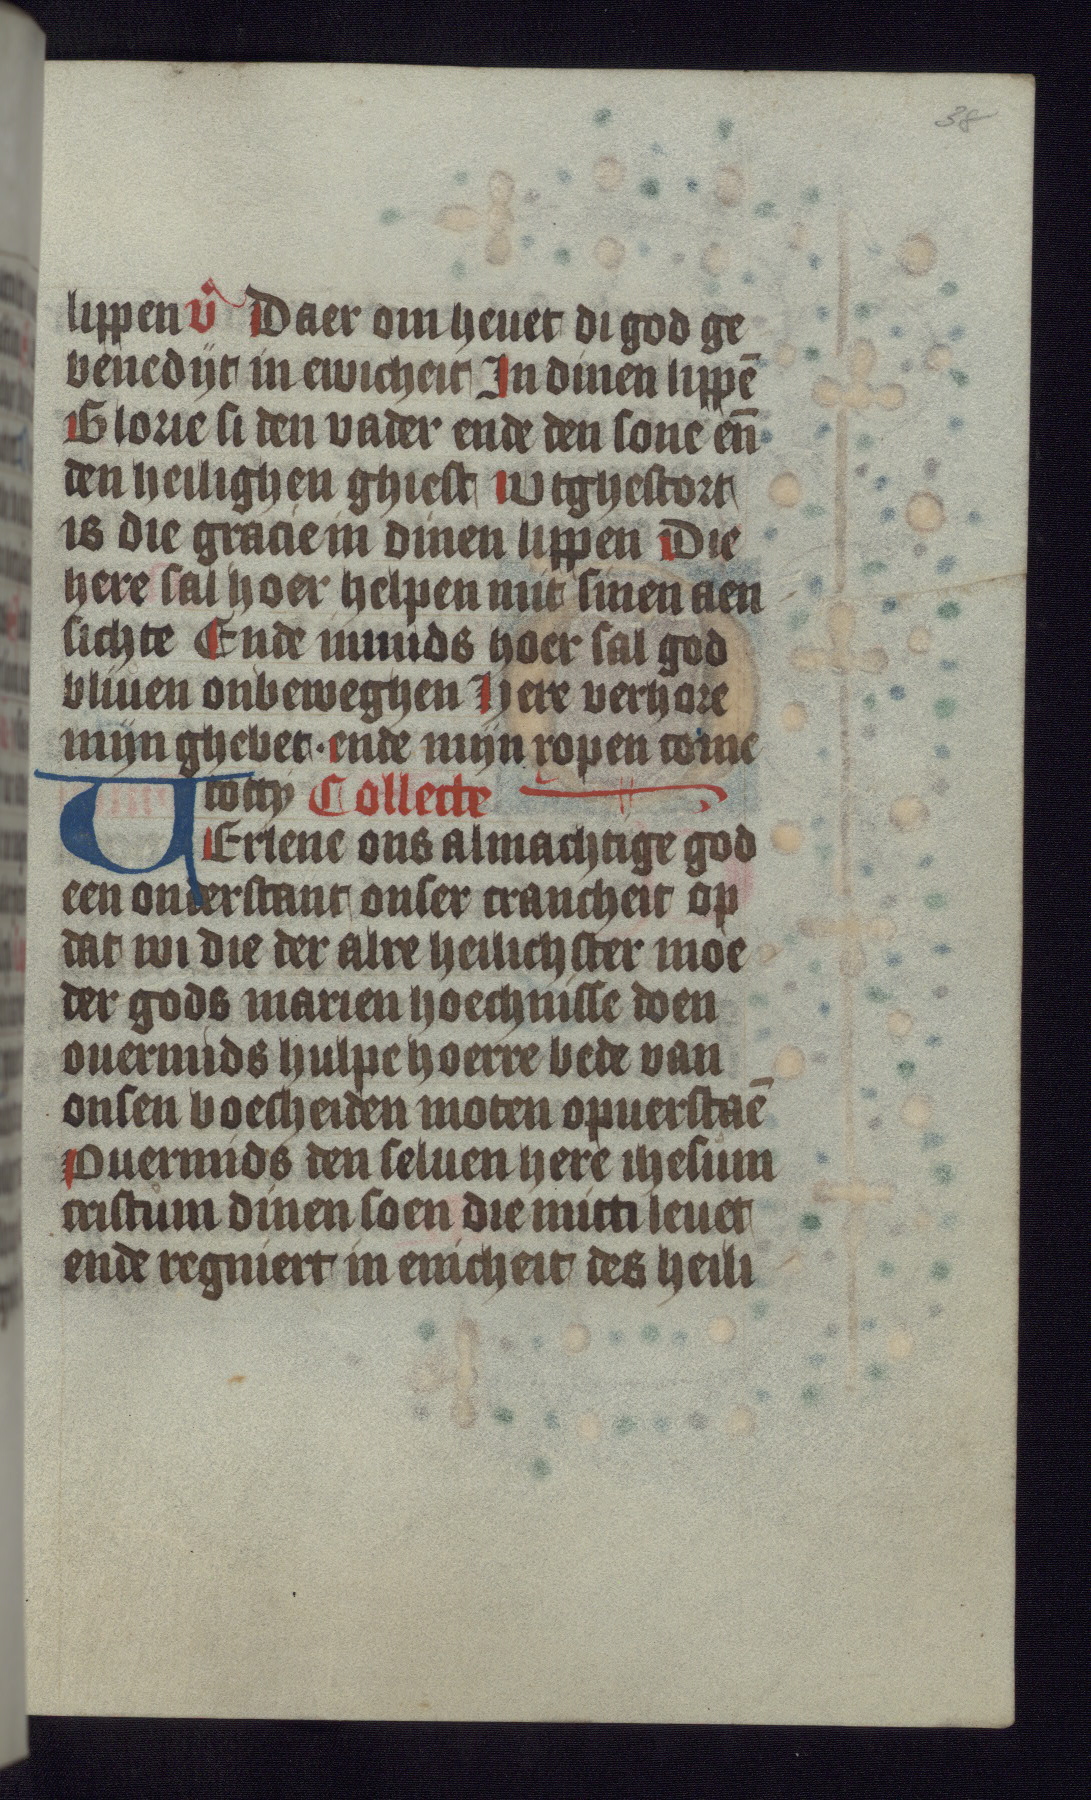 38
lippen v̄ Daer om heuet di god ge
benedijt in ewicheit In dinen lippē
Glorie si den vader ende den sone en̄
den heilighen ghiest Wtghestort
is die gracie in dinen lippen Die
here sal hoer helpen mit sinen aen
sichte Ende mmids hoer sal god
bliuen onbeweghen Here verhore
mijn ghebet · ende mijn ropen come
totty Collecte
VErlene ons almachtige god
een onderstant onser crancheit op
dat wi die der alre heilichster moe
der gods marien hoechnisse doen
ouermids hulpe hoerre bede van
onsen boesheiden moten opuerstaē
Ouermids den seluen here ihesum
cristum dinen soen die mitti leuet
ende regniert in enicheit des heili